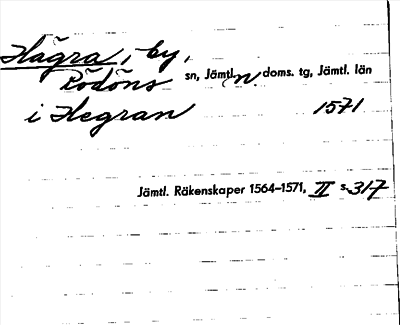 Hägra, by,
Rödöns sn, Jämtl. n. doms. tg, Jämtl. län
i Hegran 1571
Jämtl. Räkenskaper 1564-1571, II s. 317